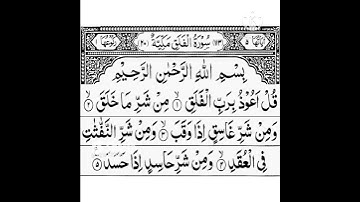 سُوْرَةُ الْفَلَقِ مَكِّيَّةٌ
بِسْمِ اللّٰهِ الرَّحْمٰنِ الرَّحِيْمِ
قُلْ اَعُوْذُ بِرَبِّ الْفَلَقِ ۙ۱ مِنْ شَرِّ مَا خَلَقَ ۙ۲
وَمِنْ شَرِّ غَاسِقٍ اِذَا وَقَبَ ۙ۳ وَمِنْ شَرِّ النَّفّٰثٰتِ
فِى الْعُقَدِ ۙ۴ وَمِنْ شَرِّ حَاسِدٍ اِذَا حَسَدَ ۵